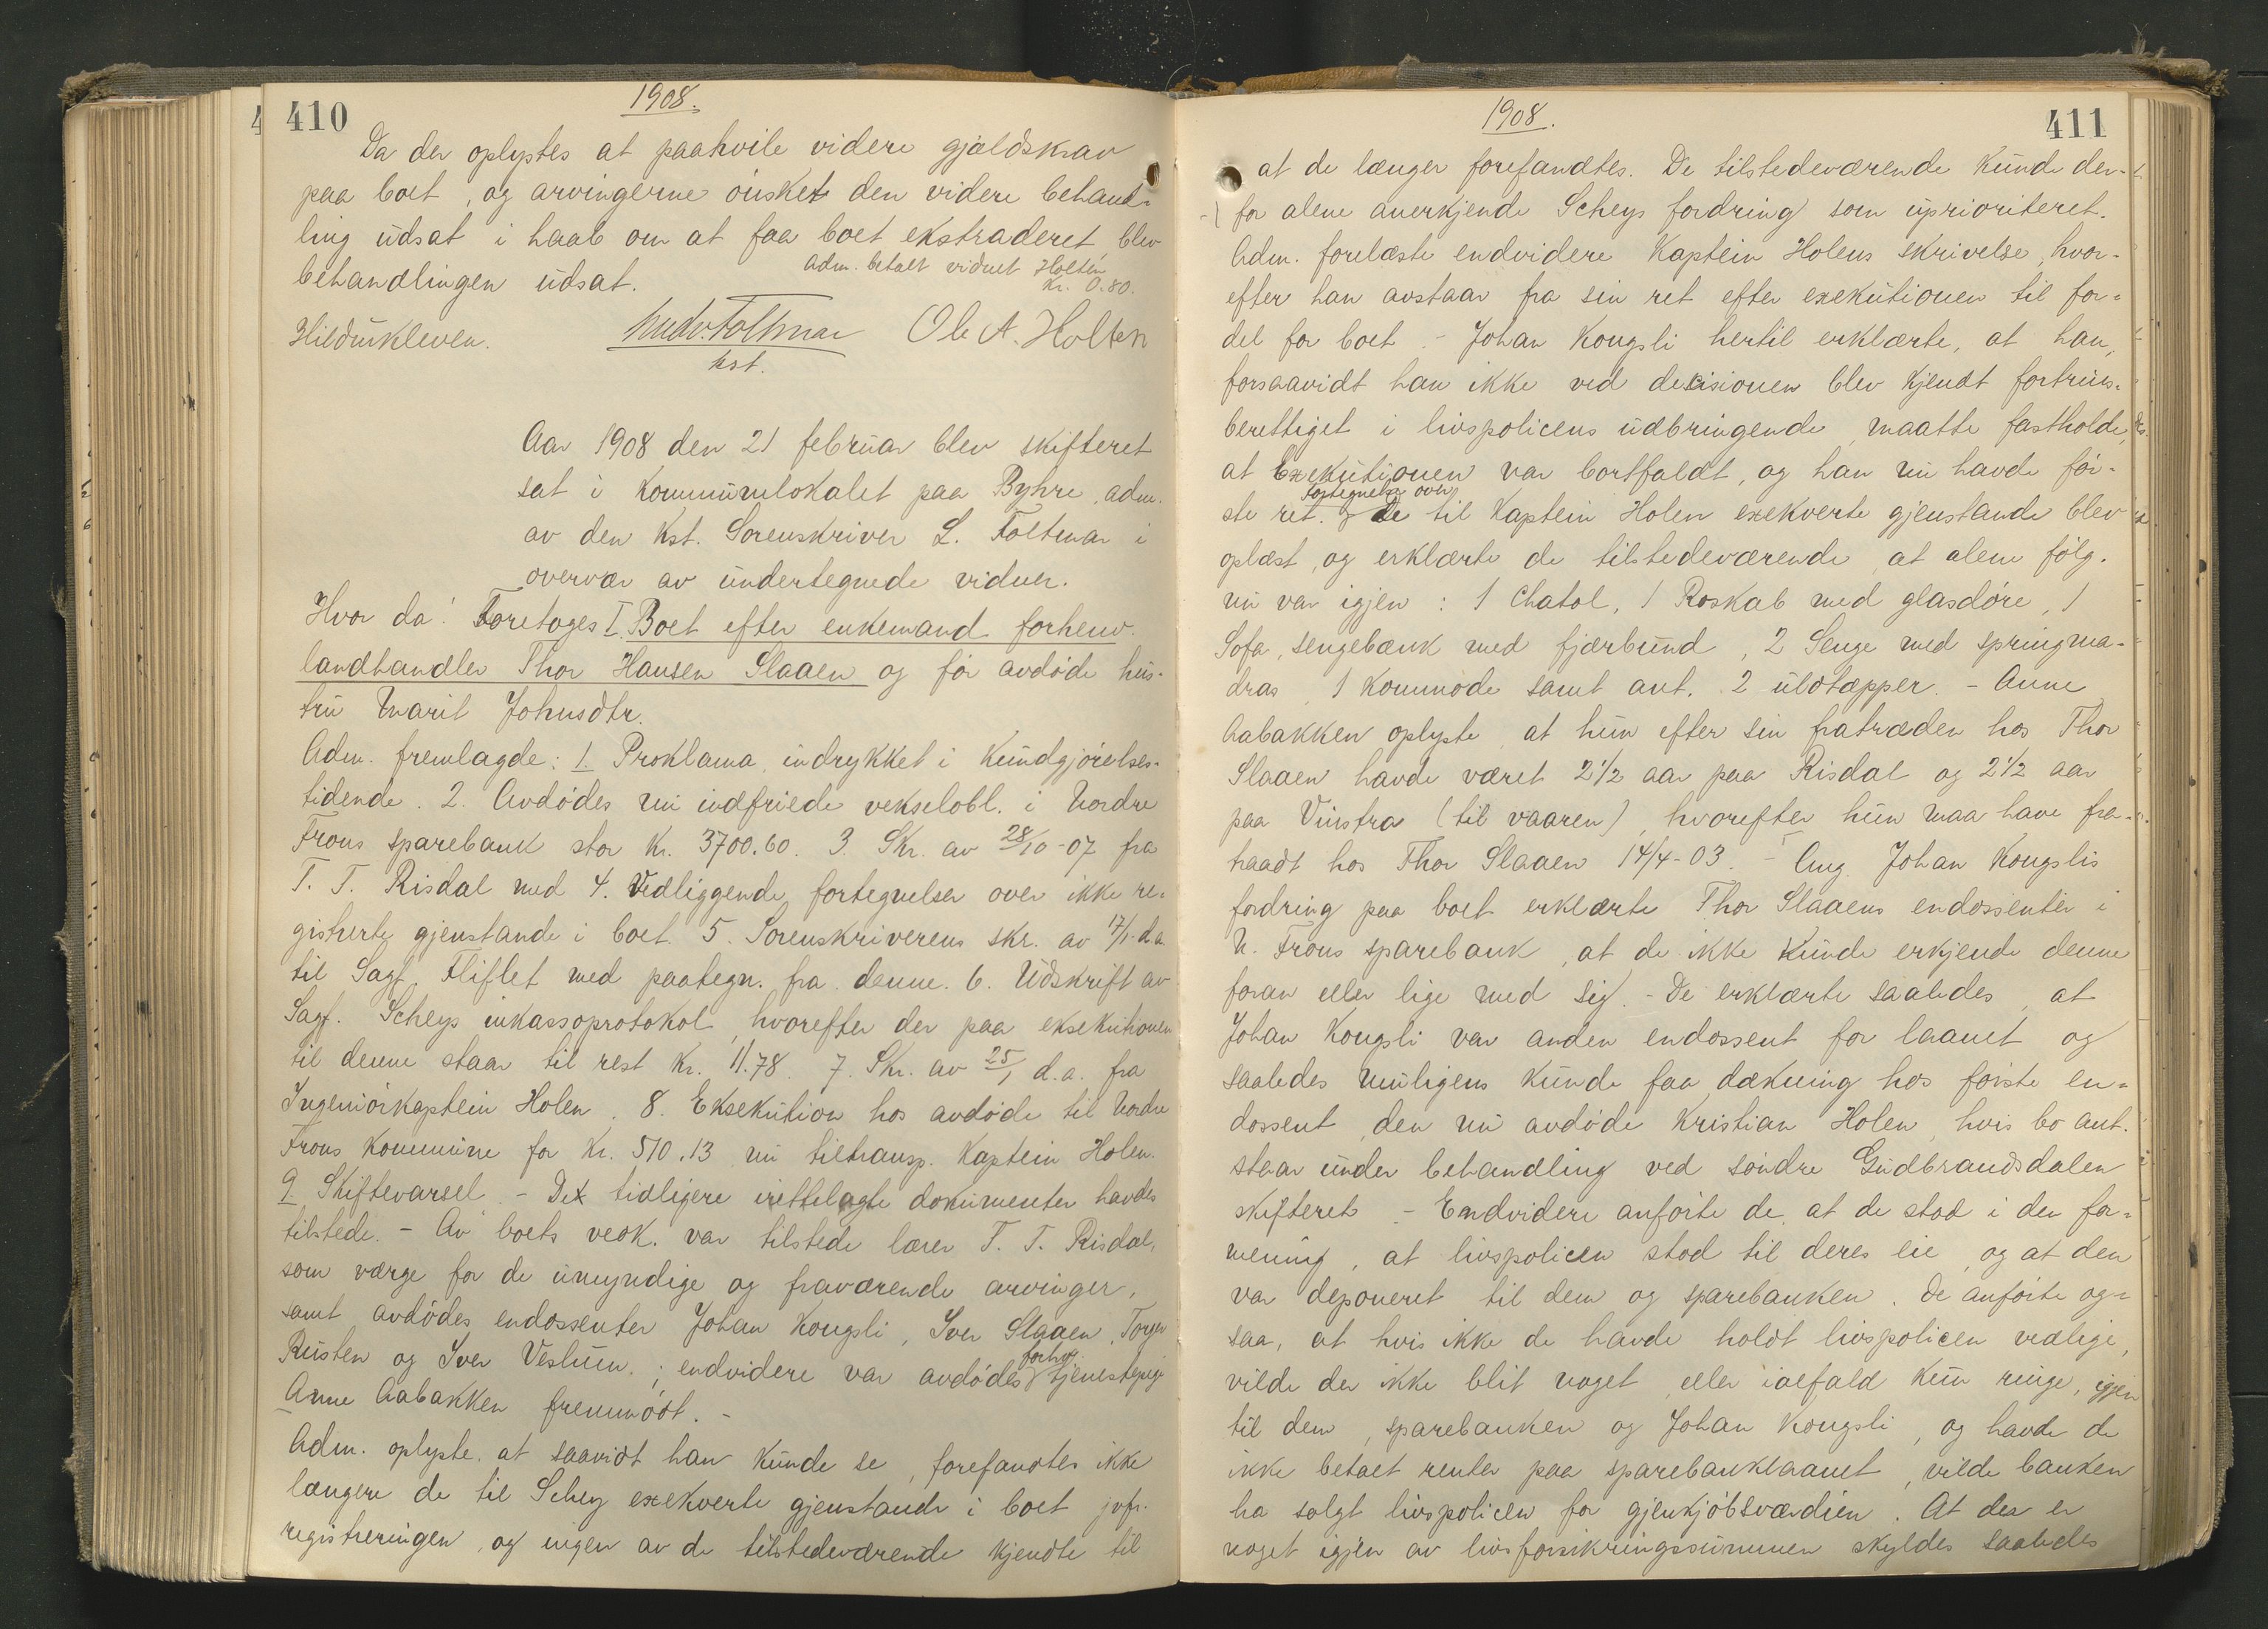 410
1908.
Da der oplystes at paahvile videre gjældskrav
paa boet, og arvingerne ønsket den videre behand-
ling udsat i haab om at faa boet ekstraderet, blev
behandlingen udsat.
Adm. betalt vidnet Holten
Kr. 0.80.
Hildurkleven.
Ole A. Holten
kst.
Aar 1908 den 21 februar blev skifteret
sat i Kommunelokalet paa Byhre, adm.
av den Kst. Sorenskriver L. Foltmar i
overvær av undertegnede vidner.
Hvor da: Foretoges I. Boet efter enkemand forhenv.
landhandler Thor Hansen Slaaen og før avdøde hus-
tru Marit Johnsdtr.
Adm. fremlagde: 1. Proklama, indrykket i Kundgjørelses-
tidende. 2. Avdødes nu indfriede vekselobl. i Nordre
Frons sparebank stor Kr. 3700.60. 3. Skr. av 28/10-07 fra
T. T. Risdal med 4. Vedliggende fortegnelser over ikke re-
gistrerte gjenstande i boet. 5. Sorenskriverens skr. av 17/1 d.a.
til Sagf. Fliflet med paategn. fra denne. 6. Udskrift av
Sagf. Scheys inkassoprotokol, hvorefter der paa eksekutionen
til denne staar til rest Kr. 11.78. 7. Skr. av 25/1 d.a. fra
Ingeniørkaptein Holen. 8. Eksekution hos avdøde til Nordre
Frons Kommune for Kr. 510.13 nu tiltransp. Kaptein Holen.
9. Skiftevarsel. - Det tidligere irettelagte dokumenter havdes
tilstede. - Av boets vedk. var tilstede lærer T. T. Risdal,
som værge for de umyndige og fraværende arvinger,
samt avdødes endossenter Johan Kongsli, Iver Slaaen, Torger
Rusten og Iver Veslum.; endvidere var avdødes forhv. tjenestepige
Anne Aabakken fremmødt. -
Adm. oplyste, at saavidt han kunde se, forefandtes ikke
længere de til Schey exekverte gjenstande i boet jvfr.
registreringen, og ingen av de tilstedeværende kjendte til
411
1908.
at de længer forefandtes. De tilstedeværende kunde der-
for alene anerkjende Scheys fordring som uprioriteret.
Adm. forelæste endvidere Kaptein Holens skrivelse, hvor-
efter han avstaar fra sin ret efter exekutionen til for-
del for boet. - Johan Kongsli hertil erklærte, at han,
forsaavidt han ikke ved decisionen blev kjendt fortrins-
berettiget i livspolicens udbringende, maatte fastholde,
at Exekutionen var bortfaldt, og han nu havde før-
ste ret. Fortegnelse over de til Kaptein Holen exekverte gjenstande blev
oplæst, og erklærte de tilstedeværende at alene følg.
nu var igjen: 1 Chatol, 1 Roskab med glasdøre, 1
Sofa, sengebænk med fjærbund, 2 Senge med springma-
dras, 1 Kommode samt ant. 2 uldtæpper. - Anne
Aabakken oplyste, at hun efter sin fratræden hos Thor
Slaaen havde været 2 1/2 aar paa Risdal og 2 1/2 aar
paa Vinstra (til vaaren), hvorefter hun maa have fra-
traadt hos Thor Slaaen 14/4-03. - Ang. Johan Kongslis
fordring paa boet erklærte Thor Slaaens endossenter i
N. Frons sparebank, at de ikke kunde erkjende denne
foran eller lige med sig. - De erklærte saaledes, at
Johan Kongsli var anden endossent for laanet og
saaledes muligens kunde faa dækning hos første en-
dossent, den nu avdøde Kristian Holen, hvis bo ant.
staar under behandling ved søndre Gudbrandsdalen
skifteret. - Endvidere anførte de, at de stod i den for-
mening, at livspolicen stod til deres eie, og at den
var deponeret til dem og sparebanken. De anførte og-
saa, at hvis ikke de havde holdt livspolicen vedlige,
vilde der ikke blit noget, eller ialfald kun ringe, igjen
til dem, sparebanken og Johan Kongsli, og havde de
ikke betalt renter paa sparebanklaanet, vilde banken
ha solgt livspolicen for gjenkjøbsværdien. At der er
noget igjen av livsforsikringssummen skyldes saaledes